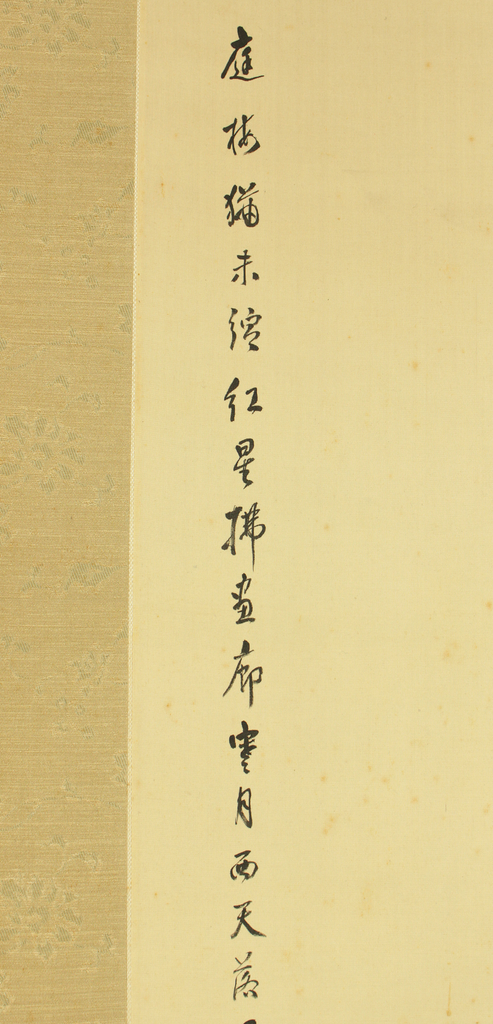 庭梅猶未綻紅星拂画廊寒月西天落